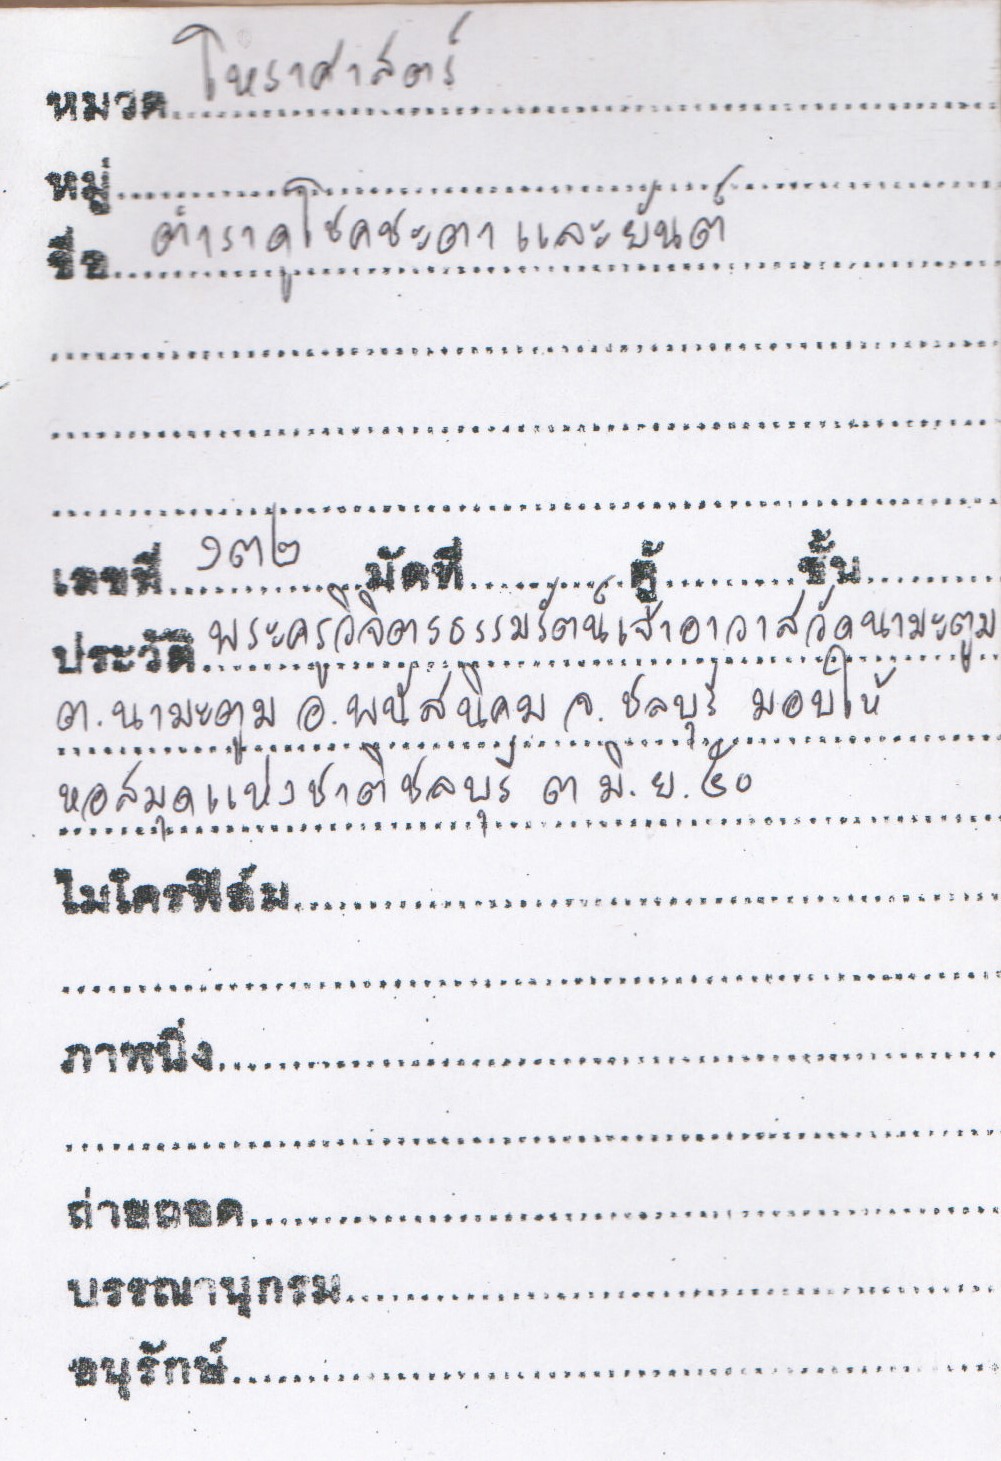 หมวด โหราศาสตร์
หมู่
ชื่อ ตำราดูโชคชะตา และยันต์
เลขที่ ๑๓๒ มัดที่ ตู้ ชั้น
ประวัติ พระครูวิจิตรธรรมรัตน์เจ้าอาวาสวัดนามะตูม
ต.นามะตูม อ.พนัสนิคม จ.ชลบุรี มอบให้
หอสมุดแห่งชาติชลบุรี ๓ มิ.ย.๕๐
ไมโครฟิล์ม
ภาพนิ่ง
ถ่ายถอด
บรรณานุกรม
อนุรักษ์